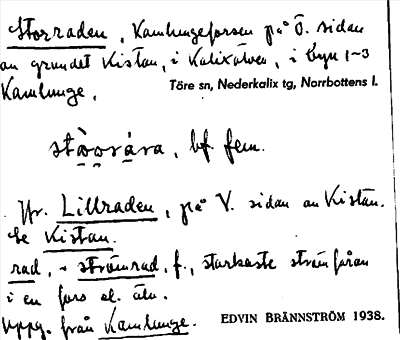 Storraden, Kamlungeforsen på Ö. sidan
av grundet Kistan, i Kalixälven, i byn 1-3
Kamlunge.
Töre sn, Nederkalix tg, Norrbottens l.
bf. fem.
Jfr. Lillraden, på V. sidan av Kistan.
Se Kistan.
rad, strömrad, f., starkaste strömfåran
i en fors el. älv.
Uppg. från Kamlunge.
EDVIN BRÄNNSTRÖM 1938.